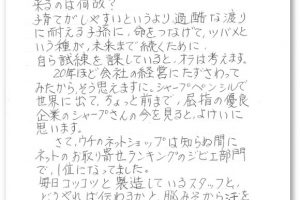 来るのは何故?
子育てがしやすいというより過酷な渡り
に耐える子孫に、命をつなげて、ツバメと
いう種が、未来まで続くために、
自ら試練を課していると、オラは考えます。
20年ほど会社の経営にたずさわって
みたから、そう思えますに。シャープペンシルで
世界に出て、ちょっと前まで、屈指の優良
企業のシャープさんの今を見ると、よけいに
思います。
さて、ウチのネットショップは知らぬ間に
ネットのお取り寄せランキングのジビエ部門
で、1位になってました。
毎日コツコツと製造しているスタッフと、
どうやれば伝わるかと、脳みそから汗を